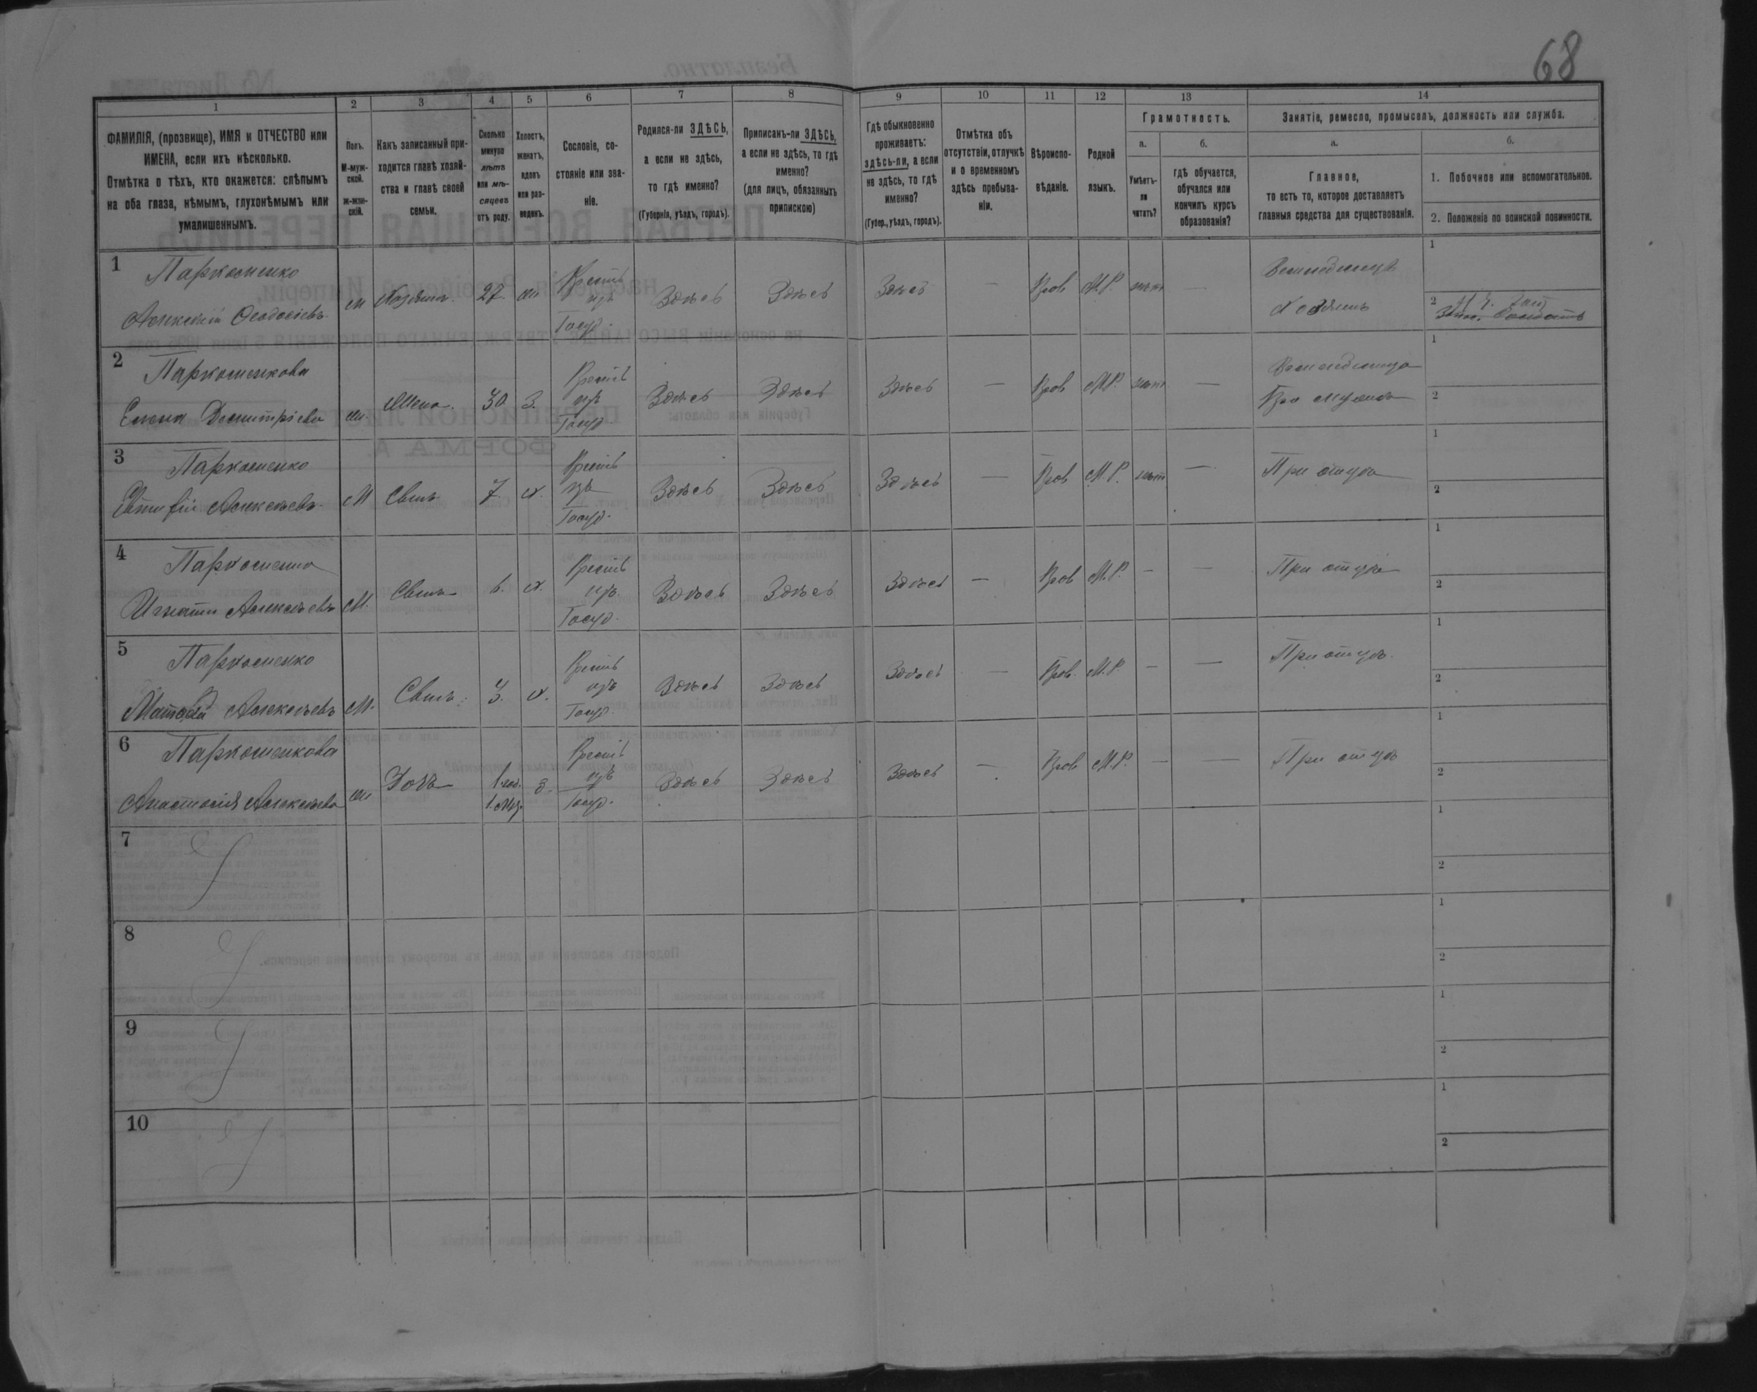 68
1 2 3 4 5 6 7 8 9 10 11 12 13 14
ФАМИЛІЯ, (прозвище), ИМЯ и ОТЧЕСТВО или
ИМЕНА, если ихъ нѣсколько.
Отмѣтка о тѣхъ, кто окажется: слѣпымъ
на оба глаза, нѣмымъ, глухонѣмымъ или
умалишеннымъ.
Полъ.
М-муж-
ской.
ж-жен-
скій.
Какъ записанный при-
ходится главѣ хозяй-
ства и главѣ своей
семьи.
Сколько
минуло
лѣтъ
или мѣ-
сяцевъ
отъ роду.
Холостъ,
женатъ,
вдовъ
или раз-
веденъ.
Сословіе, со-
стояніе или зва-
ніе.
Родился-ли ЗДѢСЬ,
а если не здѣсь,
то гдѣ именно?
(Губернія, уѣздъ, городъ).
Приписанъ-ли ЗДѢСЬ,
а если не здѣсь, то гдѣ
именно?
(для лицъ, обязанныхъ
припискою)
Гдѣ обыкновенно
проживаетъ:
здѣсь-ли, а если
не здѣсь, то гдѣ
именно?
(Губер., уѣздъ, городъ).
Отмѣтка объ
отсутствіи, отлучкѣ
и о временномъ
здѣсь пребыва-
ніи.
Вѣроиспо-
вѣданіе.
Родной
языкъ.
Грамотность.
а.
Умѣетъ-
ли
читать?
б.
гдѣ обучается,
обучался или
кончилъ курсъ
образованія?
Занятіе, ремесло, промыселъ, должность или служба.
а.
Главное,
то есть то, которое доставляетъ
главныя средства для существованія.
б.
1. Побочное или вспомогательное.
2. Положеніе по воинской повинности.
1 Пархоменко
Алексѣй Ѳеодосіевъ
Хозяинъ 27
Крест.
изъ
Госуд.
Здѣсь Здѣсь Здѣсь — Прав М.Р. нѣтъ —
Хозяинъ
1
2
2 Пархоменкова
Елена Дмитріева
ж. Жена 30 З.
Крест.
изъ
Госуд.
Здѣсь Здѣсь Здѣсь — Прав М.Р. нѣтъ —
При мужѣ
1
2
3 Пархоменко
Алексѣевъ
М Сынъ 7 х.
Крест.
изъ
Госуд.
Здѣсь Здѣсь Здѣсь — Прав М.Р. нѣтъ —
При отцѣ
1
2
4 Пархоменко
Игнатій Алексѣевъ
М. Сынъ 6. х.
Крест.
изъ
Госуд.
Здѣсь Здѣсь Здѣсь — Прав М.Р. — —
При отцѣ
1
2
5 Пархоменко
Матвѣй Алексѣевъ
М. Сынъ 3. х.
Крест.
изъ
Госуд.
Здѣсь Здѣсь Здѣсь — Прав. М.Р. — —
При отцѣ
1
2
6 Пархоменкова
Анастасія Алексѣева
ж Дочь д.
Крест.
изъ
Госуд.
Здѣсь Здѣсь Здѣсь — Прав М.Р. — —
При отцѣ
1
2
7
1
2
8
1
2
9
1
2
10
1
2